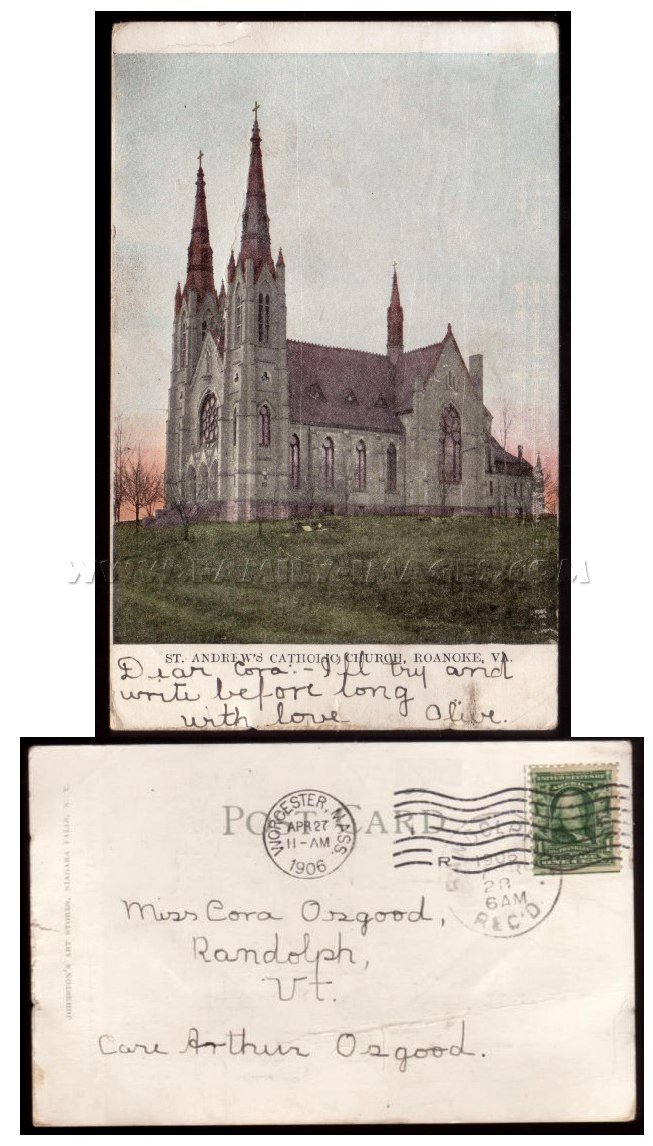 WWW.FAMILY-IMAGES.COM
ST. ANDREW'S CATHOLIC CHURCH, ROANOKE, VA.
Dear Cora:- I'll try and
write before long
with love Olive.
POST CARD
WORCESTER, MASS
APR 27
11-AM
1906
UNITED STATES OF
AMERICA
R
1906
28
6 AM
REC'D.
Miss Cora Osgood,
Randolph,
Vt.
Care Arthur Osgood.
JOHNSTON'S ART STORES, NIAGARA FALLS, N. Y.